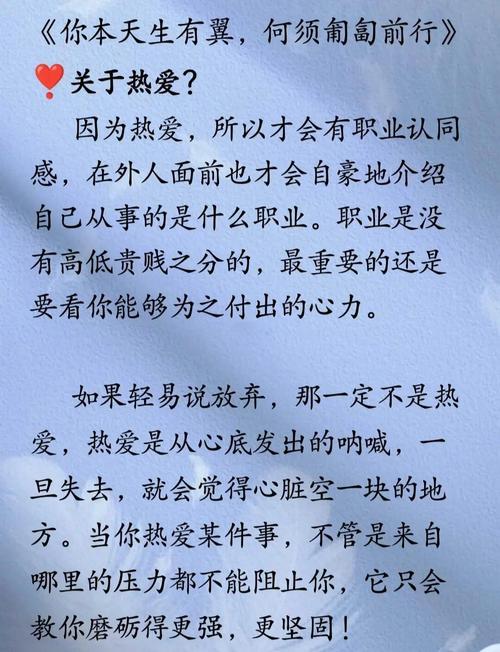 《你本天生有翼，何须匍匐前行》
❤️关于热爱？
因为热爱，所以才会有职业认同
感，在外人面前也才会自豪地介绍
自己从事的是什么职业。职业是没
有高低贵贱之分的，最重要的还是
要看你能够为之付出的心力。
如果轻易说放弃，那一定不是热
爱，热爱是从心底发出的呐喊，一
旦失去，就会觉得心脏空一块的地
方。当你热爱某件事，不管是来自
哪里的压力都不能阻止你，它只会
教你磨砺得更强，更坚固！